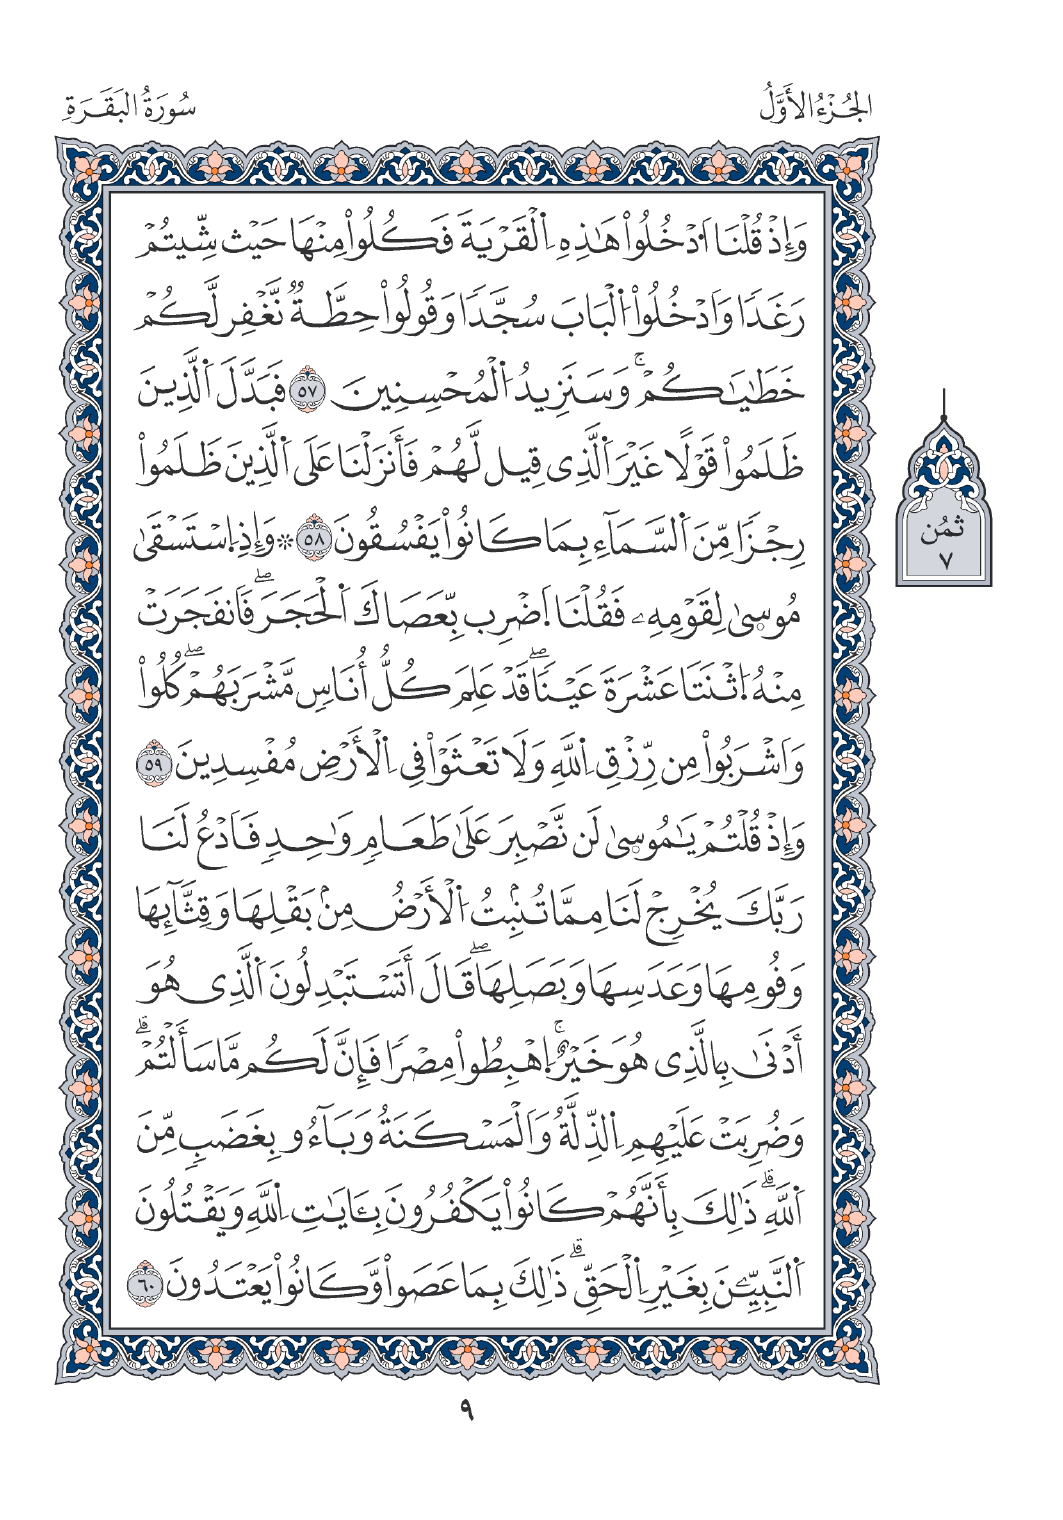 الجُزْءُ الأَوَّلُ
سُورَةُ البَقَرَةِ
وَإِذْ قُلْنَا اَدْخُلُواْ هَٰذِهِ اِ۬لْقَرْيَةَ فَكُلُواْ مِنْهَا حَيْث شِّيتُمْ
رَغَدٗا وَاَدْخُلُواْ اُ۬لْبَابَ سُجَّدٗا وَقُولُواْ حِطَّةٞ نَّغْفِر لَّكُمْ
خَطَٰيَٰكُمْۚ وَسَنَزِيدُ اُ۬لْمُحْسِنِينَ ٥٧ فَبَدَّلَ اَ۬لَّذِينَ
ظَلَمُواْ قَوْلًا غَيْرَ اَ۬لَّذِى قِيل لَّهُمْ فَأَنزَلْنَا عَلَى اَ۬لَّذِينَ ظَلَمُواْ
رِجْزٗا مِّنَ اَ۬لسَّمَآءِ بِمَا كَانُواْ يَفْسُقُونَ ٥٨ ۞ وَإِذِ اِ۪سْتَسْقَىٰ
مُوس۪ىٰ لِقَوْمِهِۦ فَقُلْنَا اَ۪ضْرِب بِّعَصَاكَ اَ۬لْحَجَرَۖ فَانفَجَرَتْ
مِنْهُ اُ۪ثْنَتَا عَشْرَةَ عَيْنٗاۖ قَدْ عَلِمَ كُلُّ أُنَاسٖ مَّشْرَبَهُمْۖ كُلُواْ
وَاَشْرَبُواْ مِن رِّزْقِ اِ۬للَّهِ وَلَا تَعْثَوْاْ فِى اِ۬لْأَرْضِ مُفْسِدِينَ ٥٩
وَإِذْ قُلْتُمْ يَٰمُوس۪ىٰ لَن نَّصْبِرَ عَلَىٰ طَعَامٖ وَٰحِدٖ فَادْعُ لَنَا
رَبَّكَ يُخْرِجْ لَنَا مِمَّا تُنۢبِتُ اُ۬لْأَرْضُ مِنۢ بَقْلِهَا وَقِثَّآئِهَا
وَفُومِهَا وَعَدَسِهَا وَبَصَلِهَاۖ قَالَ أَتَسْتَبْدِلُونَ اَ۬لَّذِى هُوَ
أَدْنَىٰ بِالَّذِى هُوَ خَيْرٌۚ اِ۪هْبِطُواْ مِصْرٗا فَإِنَّ لَكُم مَّا سَأَلْتُمْۗ
وَضُرِبَتْ عَلَيْهِمِ اِ۬لذِّلَّةُ وَالْمَسْكَنَةُ وَبَآءُو بِغَضَبٖ مِّنَ
اَ۬للَّهِۗ ذَٰلِكَ بِأَنَّهُمْ كَانُواْ يَكْفُرُونَ بِـَٔايَٰتِ اِ۬للَّهِ وَيَقْتُلُونَ
اَ۬لنَّبِيِّـۧنَ بِغَيْرِ اِ۬لْحَقِّۗ ذَٰلِكَ بِمَا عَصَواْ وَّكَانُواْ يَعْتَدُونَ ٦٠
ثُمُن
٧
٩